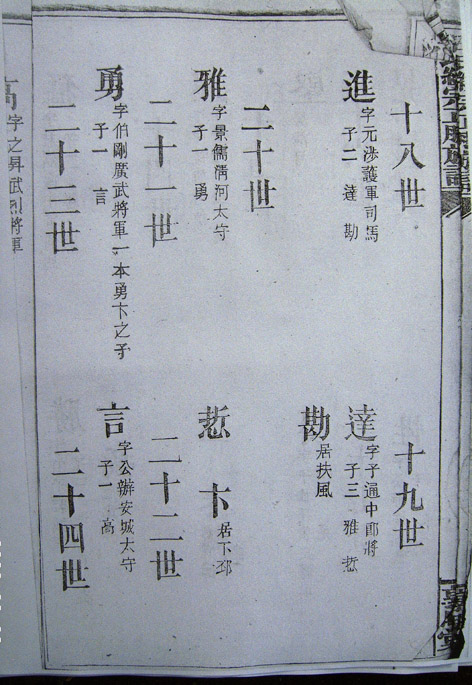 十八世
進
字元涉護軍司馬
子二 達 勘
十九世
達
字子通中郎將
子三 雅 悊
勘
居扶風
二十世
雅
字景儒清河太守
子一 勇
悊 卞
居下邳
二十一世
勇
字伯剛廣武將軍一本勇卞之子
子一 言
二十二世
言
字公辦安城太守
子一 高
二十三世
二十四世
高
字之昇武烈將軍